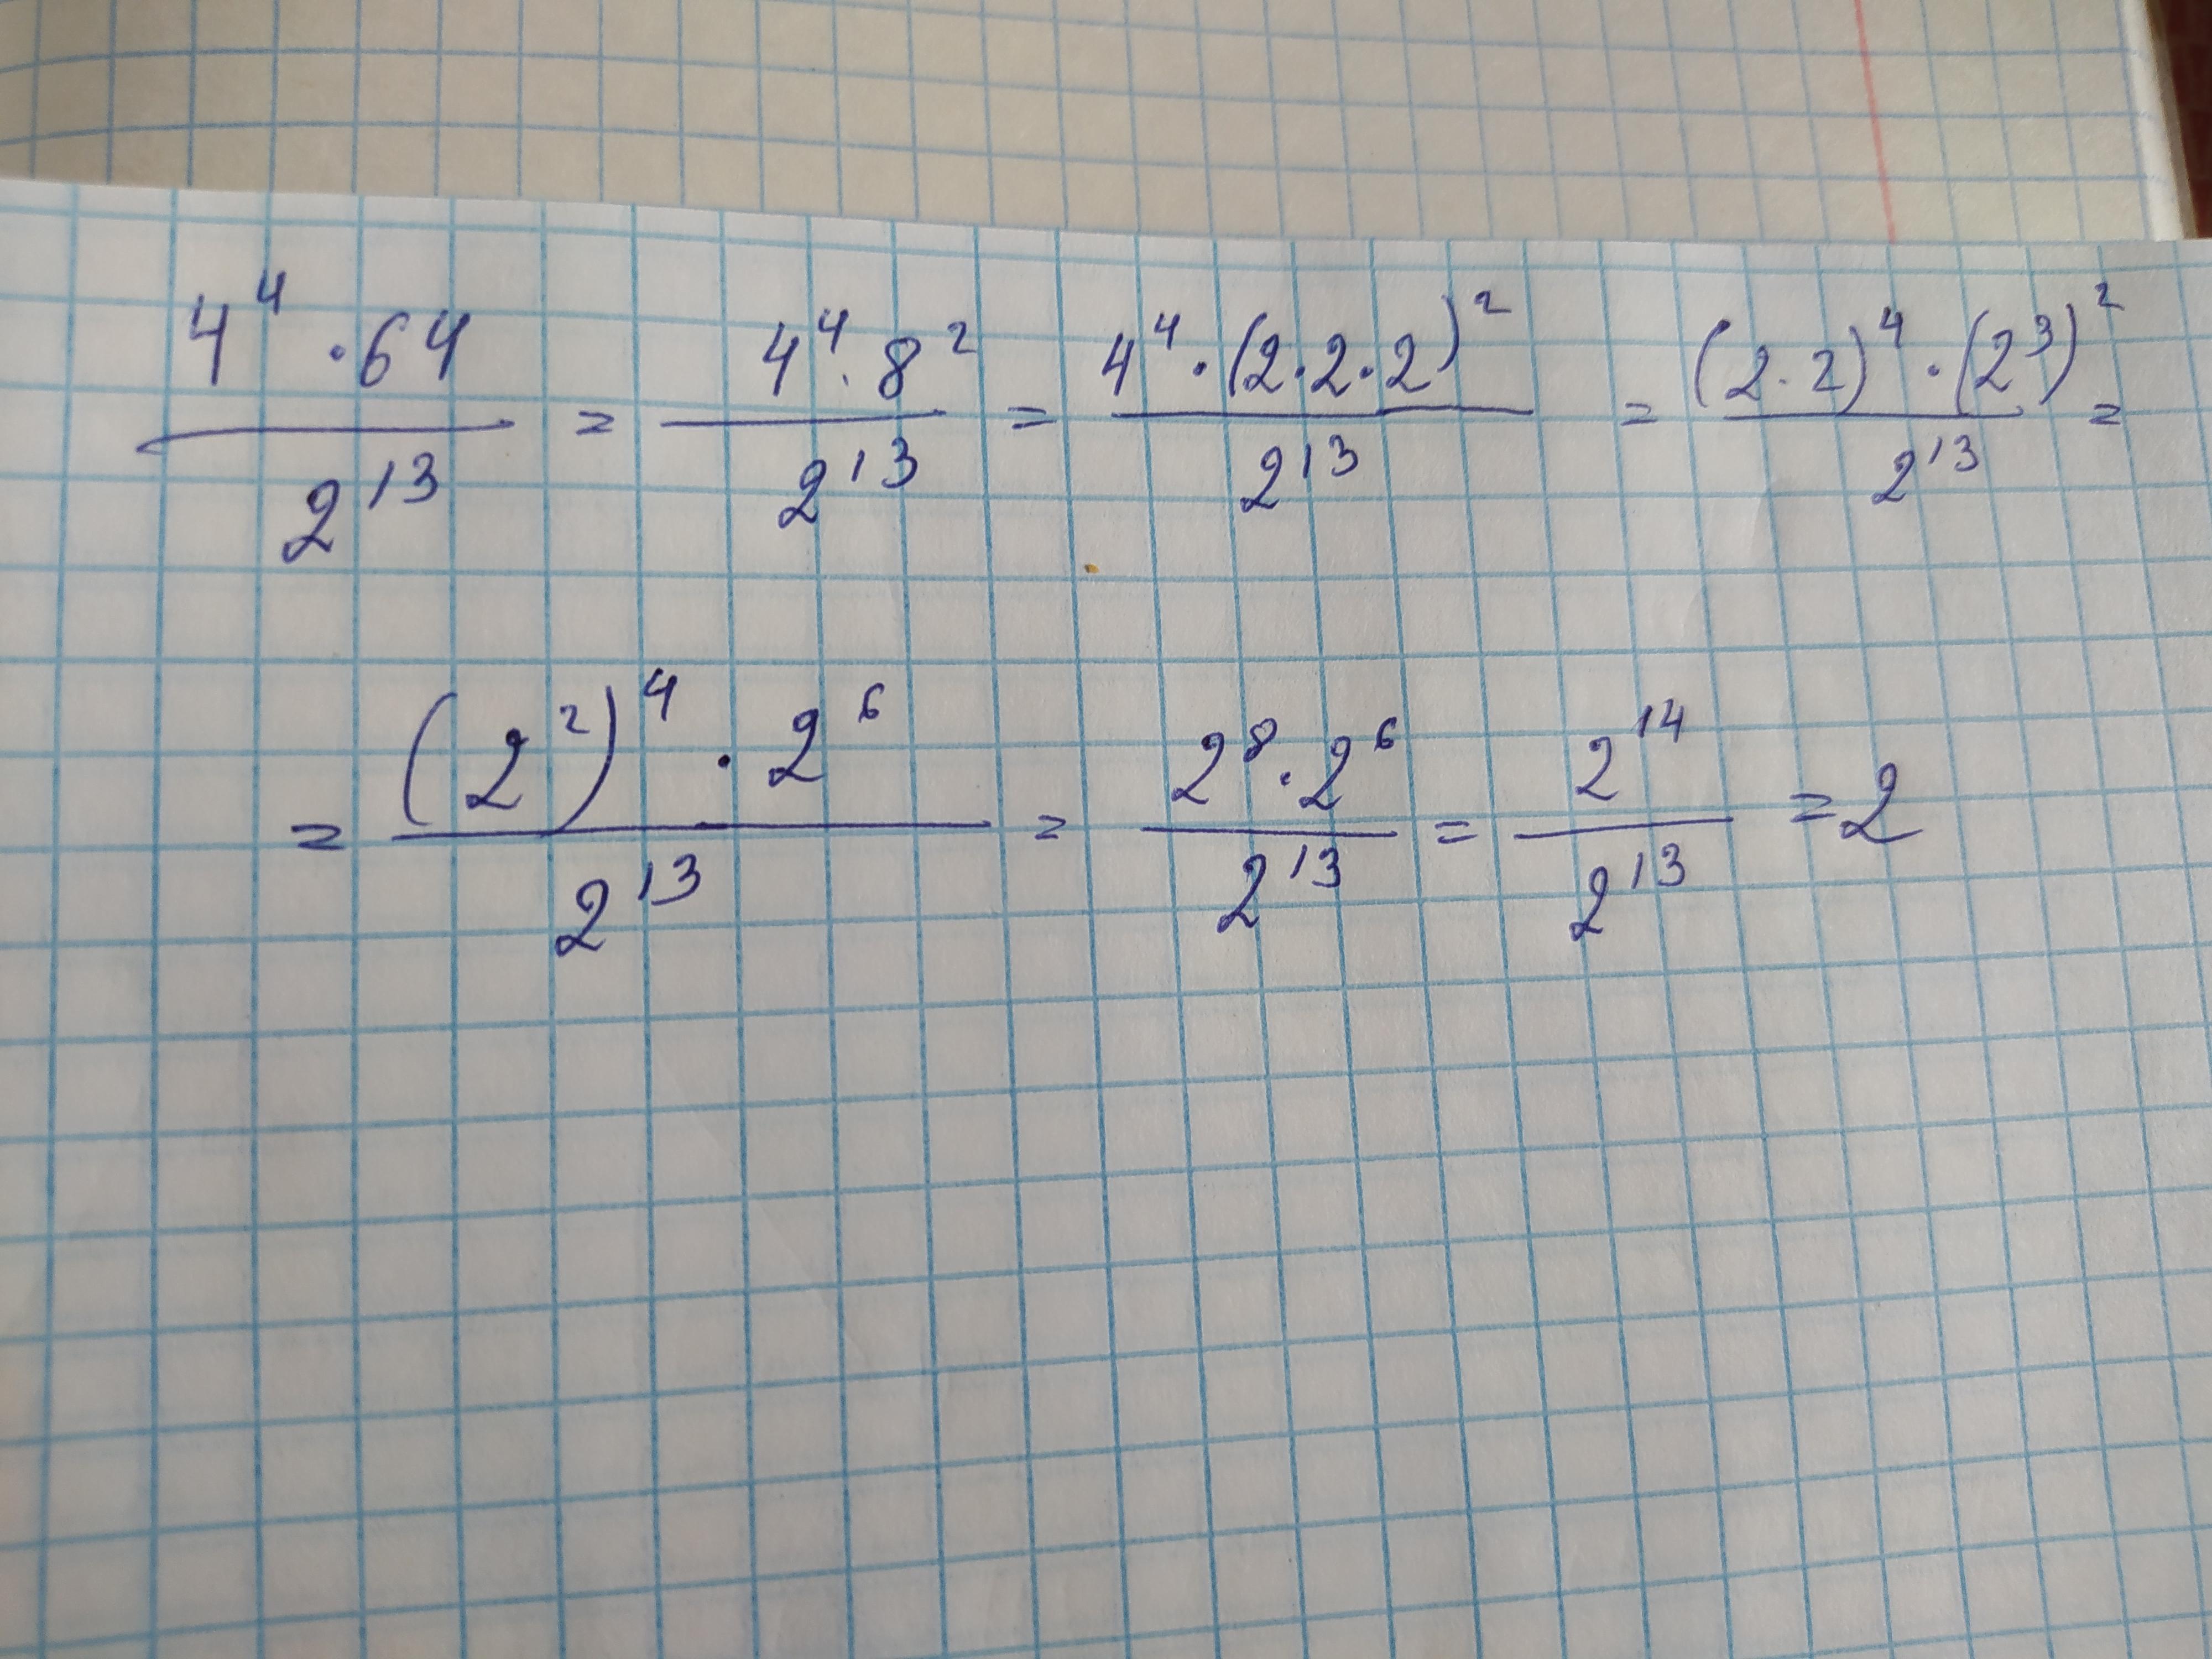 \frac{4^4 \cdot 64}{2^{13}} = \frac{4^4 \cdot 8^2}{2^{13}} = \frac{4^4 \cdot (2 \cdot 2 \cdot 2)^2}{2^{13}} = \frac{(2 \cdot 2)^4 \cdot (2^3)^2}{2^{13}} =
= \frac{(2^2)^4 \cdot 2^6}{2^{13}} = \frac{2^8 \cdot 2^6}{2^{13}} = \frac{2^{14}}{2^{13}} = 2